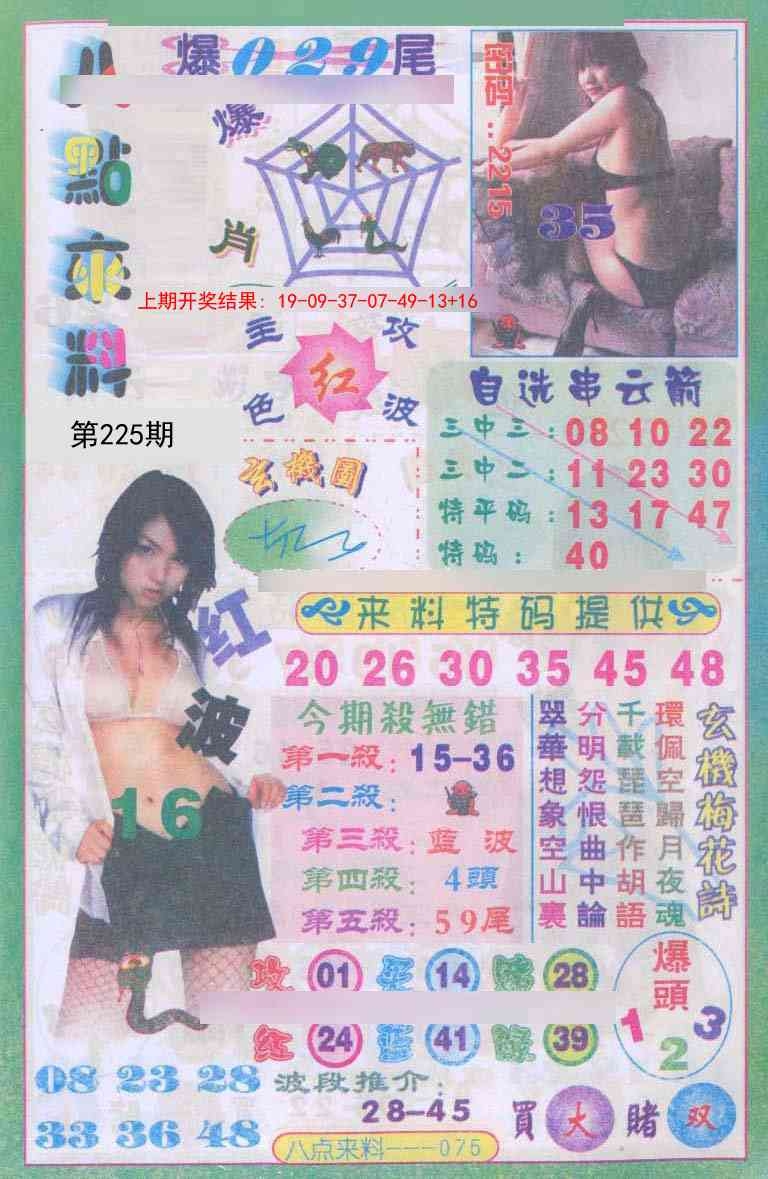 八點來料
爆029尾
爆肖
密碼:2215
35
上期开奖结果: 19-09-37-07-49-13+16
主攻
红
色波
第225期
玄機圖
自选串云箭
三中三:08 10 22
三中二:11 23 30
特平码:13 17 47
特码:40
来料特码提供
20 26 30 35 45 48
红波
16
今期殺無錯
第一殺:15-36
第二殺:
第三殺:藍波
第四殺:4頭
第五殺:59尾
玄機梅花詩
環佩空歸月夜魂
千載琵琶作胡語
分明怨恨曲中論
翠華想象空山裏
攻 01 14 28
红 24 蓝 41 綠 39
爆頭
1 2 3
08 23 28
33 36 48
波段推介:
28-45
買大賭双
八点来料---075